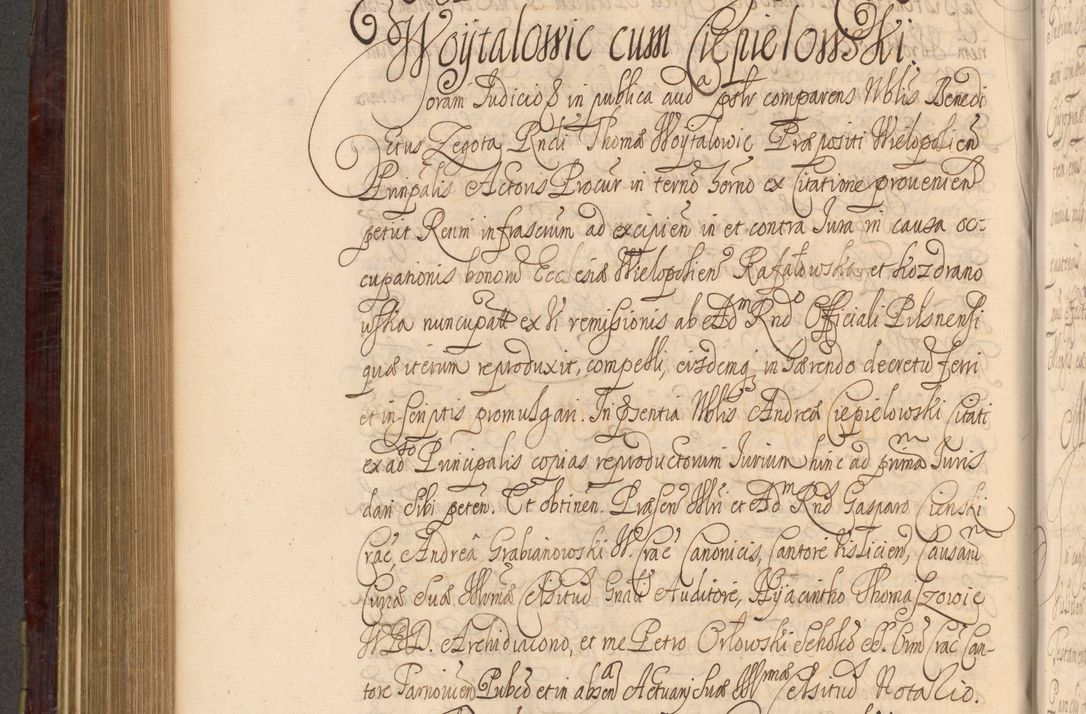 Woÿtalowic cum Ciepielowski.
Coram Judicio S in publica aud a pstr comparens Nblis Benedi
ctus Zegota Rndi Thomæ Woÿtalowic Præpositi Wielopolien
Prinpalis Actoris Procur in termo horno ex Citatione provenien
petut Reum infrascrum ad excipien in et contra Jura in causa oc-
cupationis bonor Ecclesiæ Wielopolien Rafałowska et Kozdrano
uska nuncupat ex vi remissionis ab Ad m Rndo Officiali Pilsnensi
quæ iterum reproduxit, compelli, eisdemq in hærendo decretu ferri
et in scriptis promulgari. In psentia Nblis Andreæ Ciepielowski Citati
ex ado Principalis copias reproductorum Jurium hinc ad primam Juris
dari sibi peten. Et obtinen. Præsen Illri et Ad m Rnd Gasparo Cienski
Crac, Andrea Grabianowski W. Crac Canonicis, Cantore Kisticien, Causarum
Curiæ Suæ Illmæ Celsitud Gnali Auditore, Hÿacintho Thomaszowic
W.D.D. Archidiacono, et me Petro Orłowski Scholco SS. Omn Crac Can-
tore Tarnovien Pubco et in absen a Actuarj Suæ Illmæ Celsitud Notario.